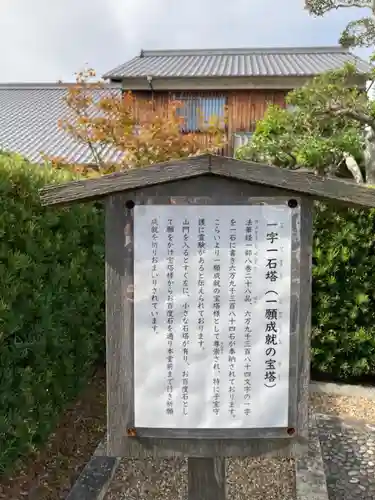 一字一石塔(一願成就の宝塔)
法華経一部八巻二十八品、六万九千三百八十四文字の一字
を一石に書き六万九千三百八十四石が奉納されております。
こらいより一願成就の宝塔様として尊崇され、特に子宝守
護に霊験があると伝えられております。
山門を入るとすぐ左に、小さな石塔が有り、お百度石とし
て願をかけ宝塔様からお百度石を通り本堂前まで行き祈願
成就を祈りおまいりされています。